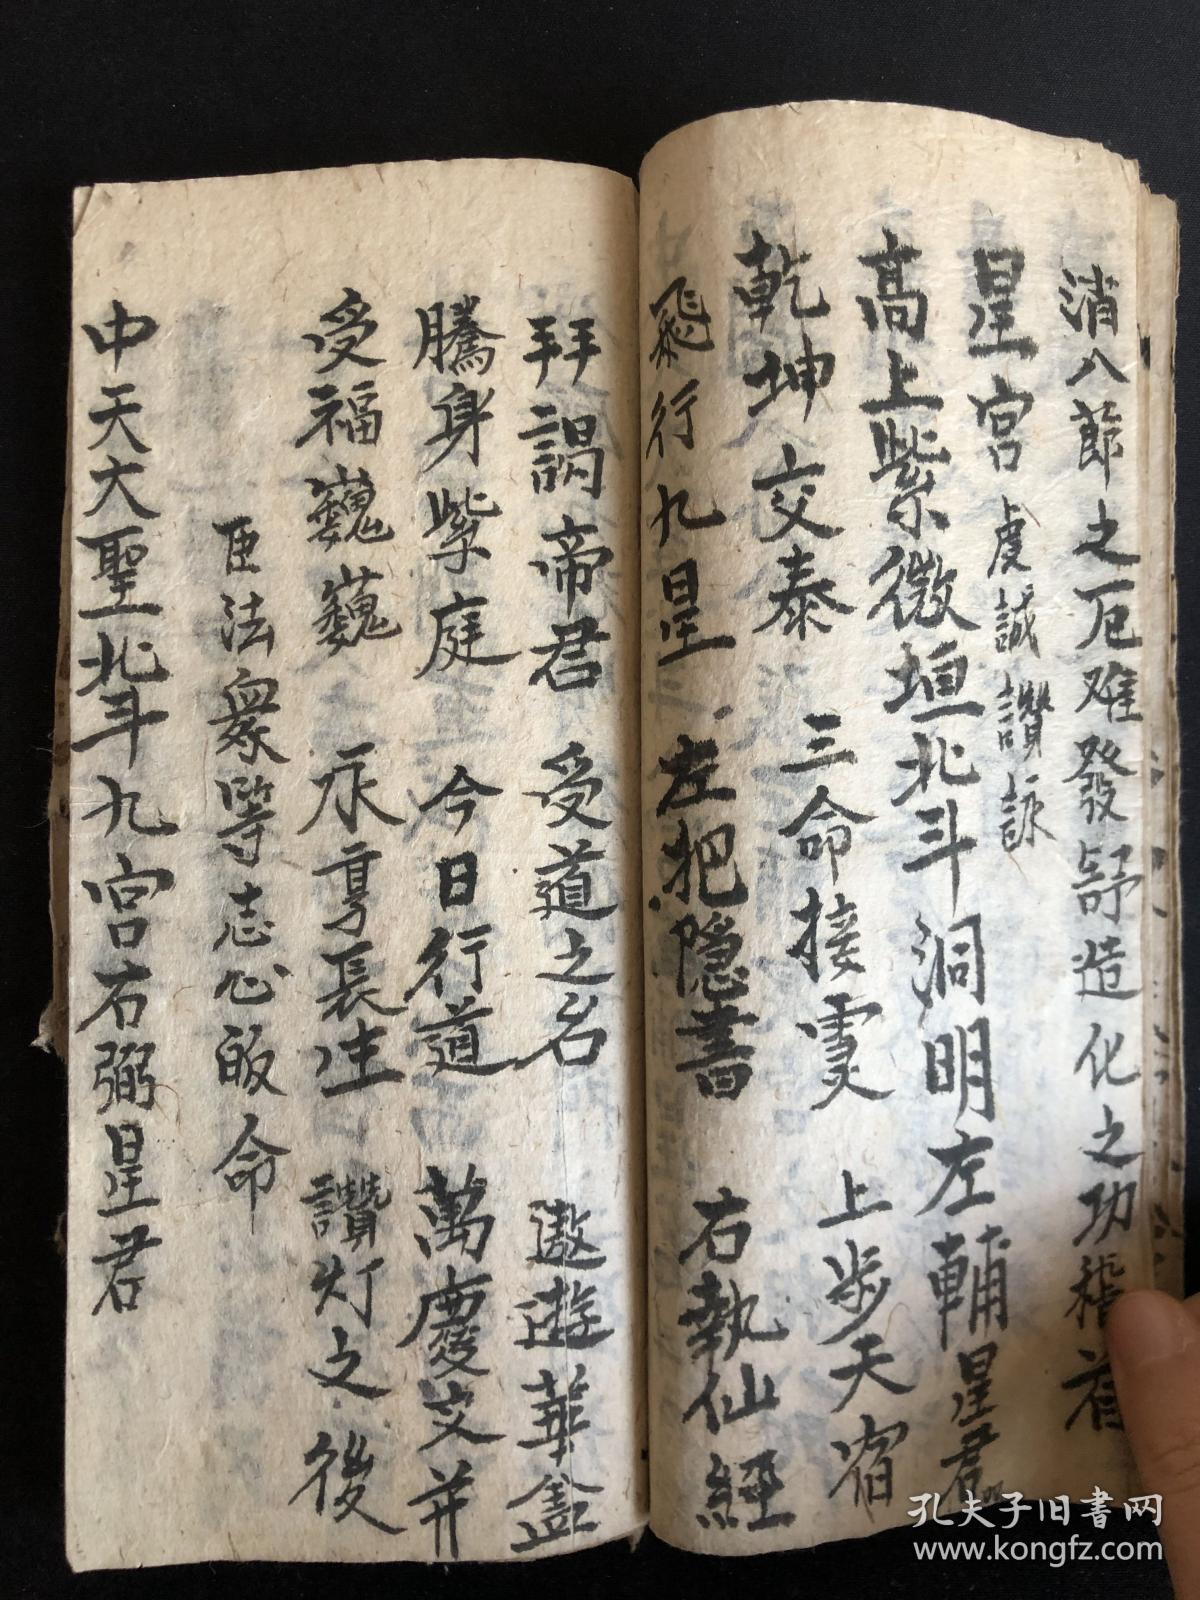 消八節之厄难發舒造化之功稽首
星宮 虔誠讚詠
高上紫微垣北斗洞明左輔星君
乾坤交泰 三命接靈 上步天宿
飛行九星 左把隐書 右執仙經
拜謁帝君 受道之名 遨遊華盖
騰身紫庭 今日行道 萬慶交并
受福巍巍 永享長生 讚灯之後
臣法衆等志心皈命
中天大聖北斗九宮右弼星君
孔夫子旧書网
www.kongfz.com